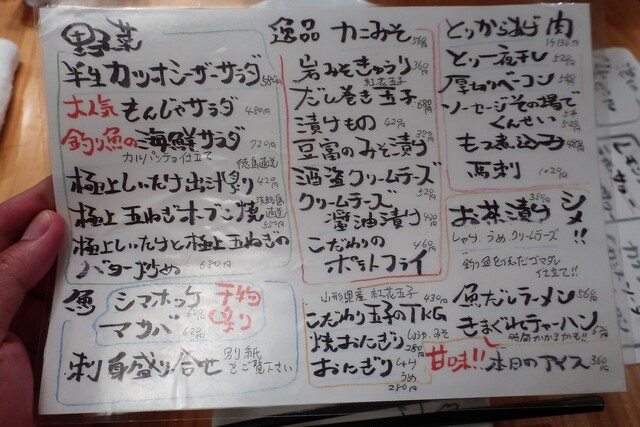 野菜
半生カツオシーザーサラダ 580円
大人気もんじゃサラダ 480円
釣り魚の海鮮サラダ 720円
カルパッチョ仕立て
徳島直送
極上しいたけ出汁炙り 420円
淡路島直送
極上玉ねぎオーブン焼 580円
極上しいたけと極上玉ねぎの
バター炒め 680円
魚
シマホッケ 620円
マサバ 620円
干物炙り
刺身盛り合せ 別紙をご覧下さい
逸品
カニみそ 560円
岩みそきゅうり 360円
紅花玉子
だし巻き玉子 680円
漬けもの 420円
豆富のみそ漬け
酒盗クリームチーズ 520円
クリームチーズ
醤油漬け 420円
こだわりの 460円
ポテトフライ
山形県産 紅花玉子 430円
こだわり玉子のTKG
焼おにぎり しょうゆ、みそ
おにぎり しゃけ うめ
280円
とりから揚げ
肉
とり一夜干し 520円
厚切りベーコン 520円
ソーセージその場で
くんせい 520円
もつ煮込み
馬刺 1020円
お茶漬け 380円
シメ!!
しゃけ、うめ、クリームチーズ
釣り魚を使ったゴマダレ
仕立て!!
魚だしラーメン 560円
きまぐれチャーハン
時間かかるかも!!
甘味!! 本日のアイス 360円